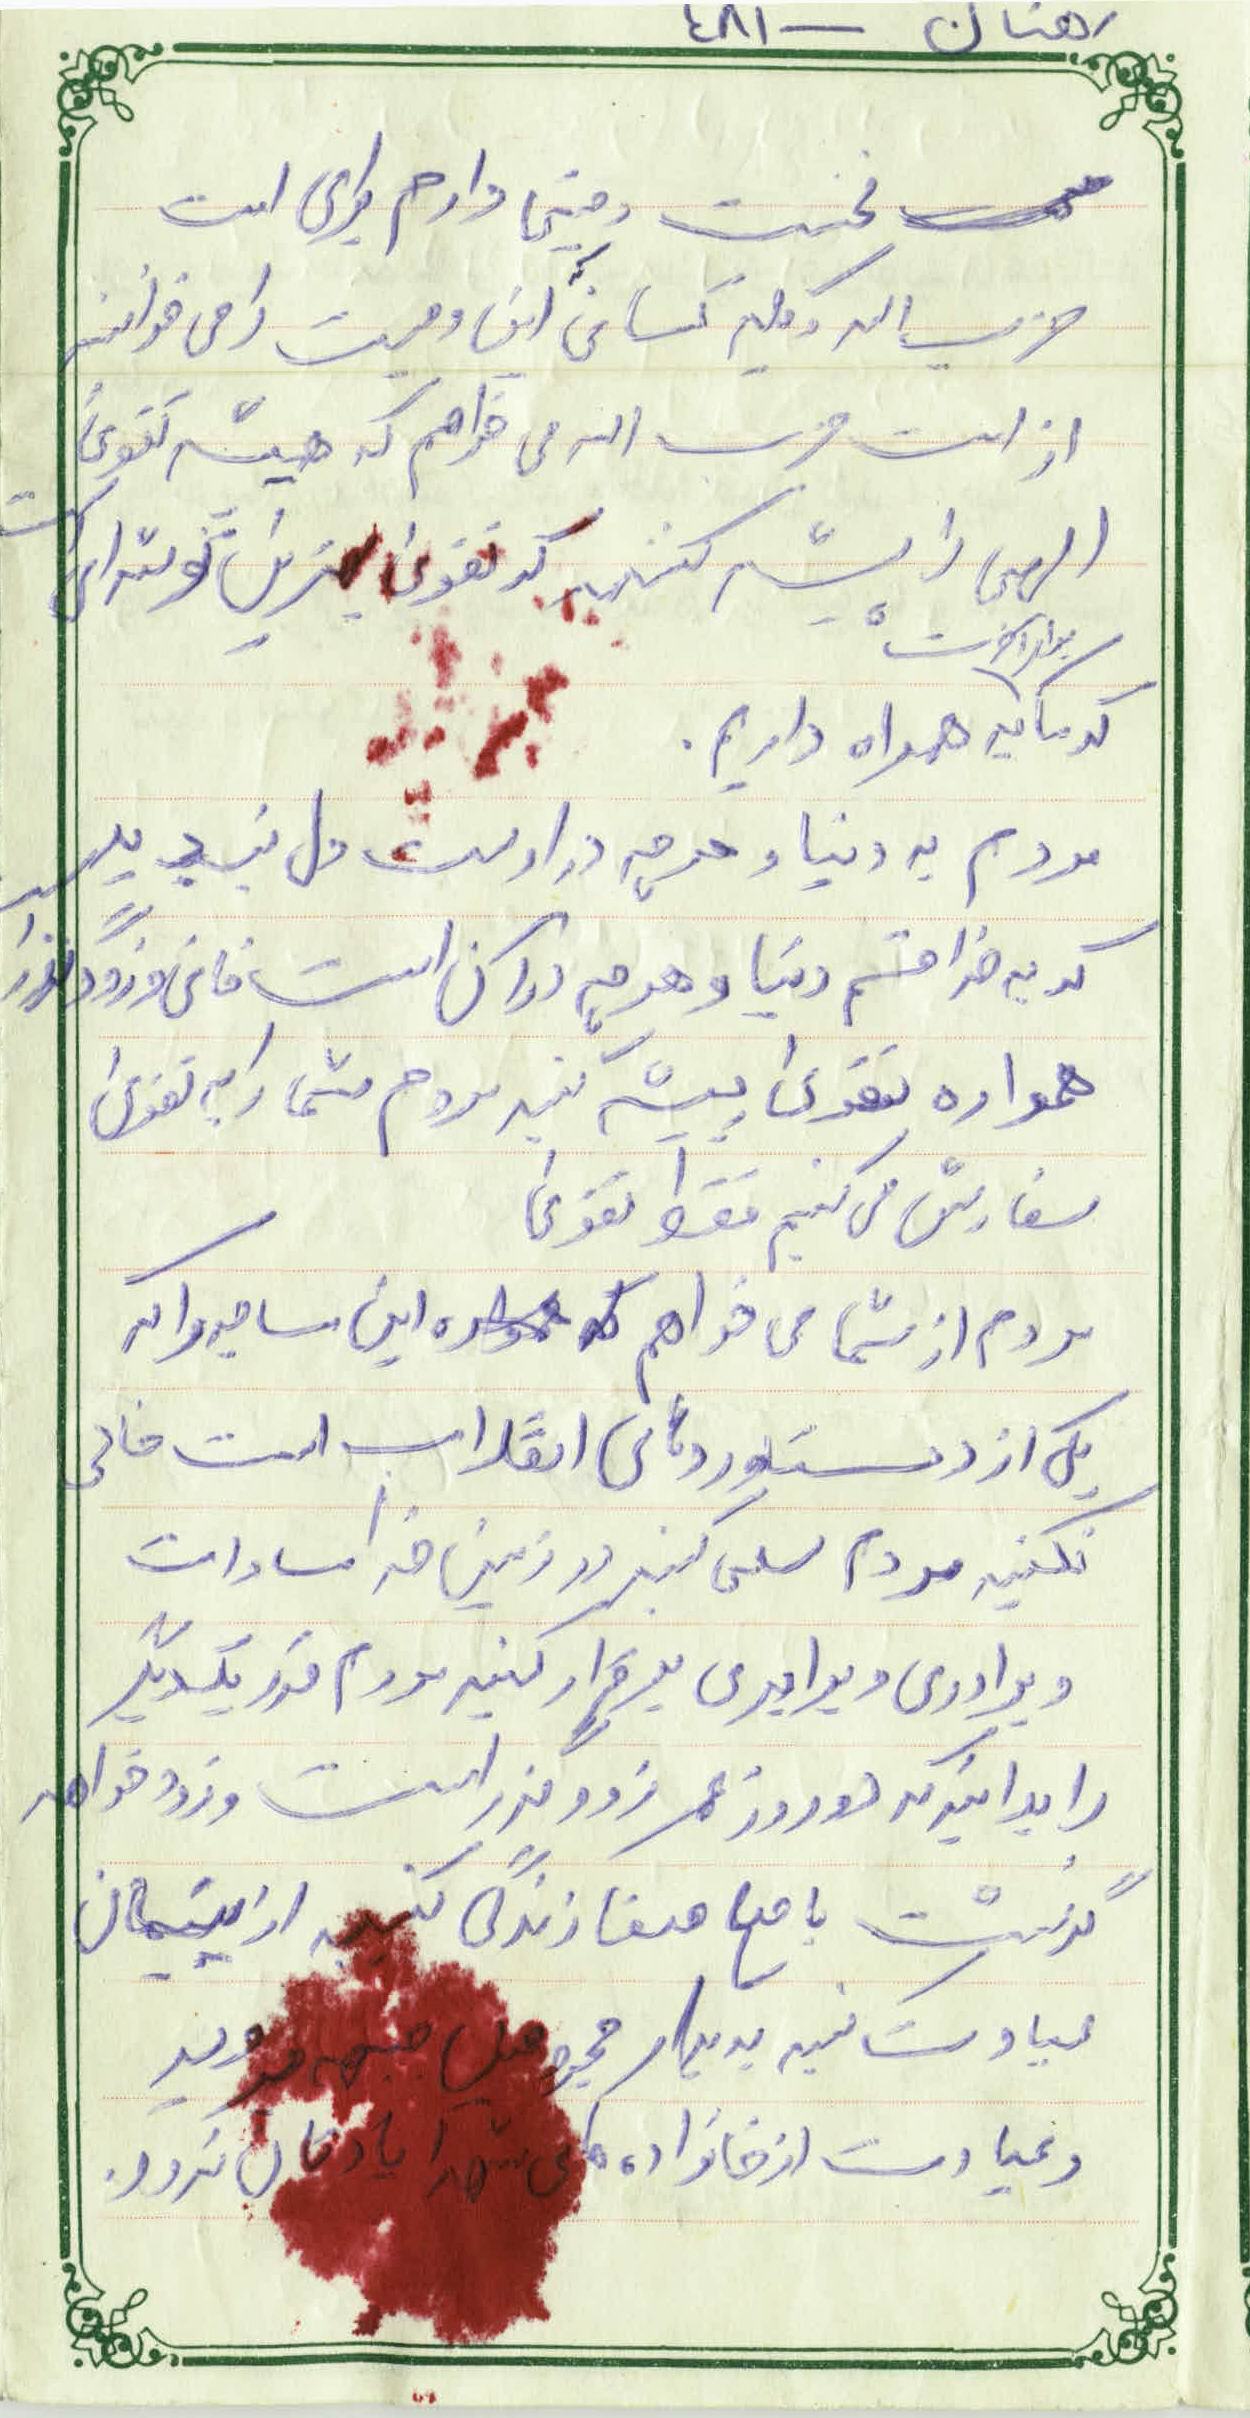 رهنان — ۴۸۱
نخست وصیتی دارم برای امت
حزب اله و کلیه کسانی که این وصیت را می خوانند
از امت حزب اله می خواهم که همیشه تقوی
الهی را پیشه کنند که تقوی بهترین توشه ای است
که ما به همراه داریم .
برای آخرت
مردم به دنیا و هرچه در اوست دل نبندید
که به خدا قسم دنیا و هرچه در آن است فانی و زودگذر است
همواره تقوی پیشه کنید مردم شما را به تقوی
سفارش می کنیم فقط تقوی
مردم از شما می خواهم که همواره این مساجد را که
یکی از دستاوردهای انقلاب است خالی
نکنید مردم سعی کنید در زمین خدا مساوات
و برادری و برابری برقرار کنید مردم قدر یکدیگر
را بدانید که دو روز عمر زودگذر است و زود خواهد
گذشت با هم با صفا زندگی کنید از یتیمان
عیادت کنید به دیدار مجروحین جبهه بروید
و عیادت از خانواده های شهدا یادتان نرود.